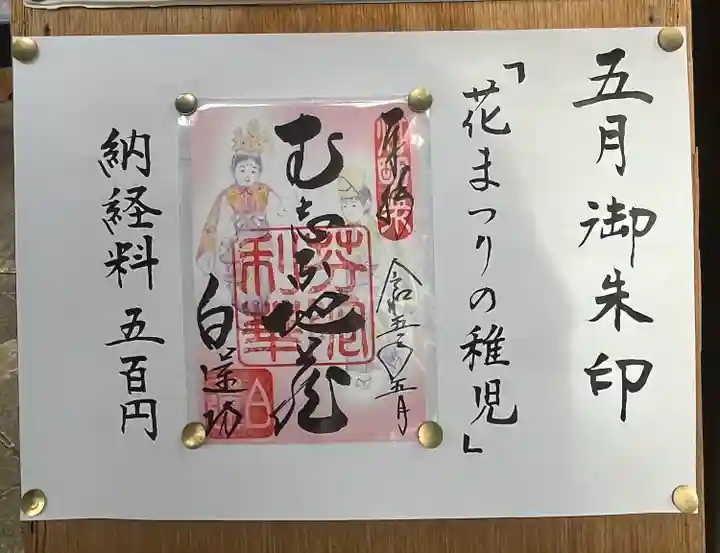 五月御朱印
「花まつりの稚児」
奉拝
令和五年五月
地蔵
白蓮坊
納経料 五百円